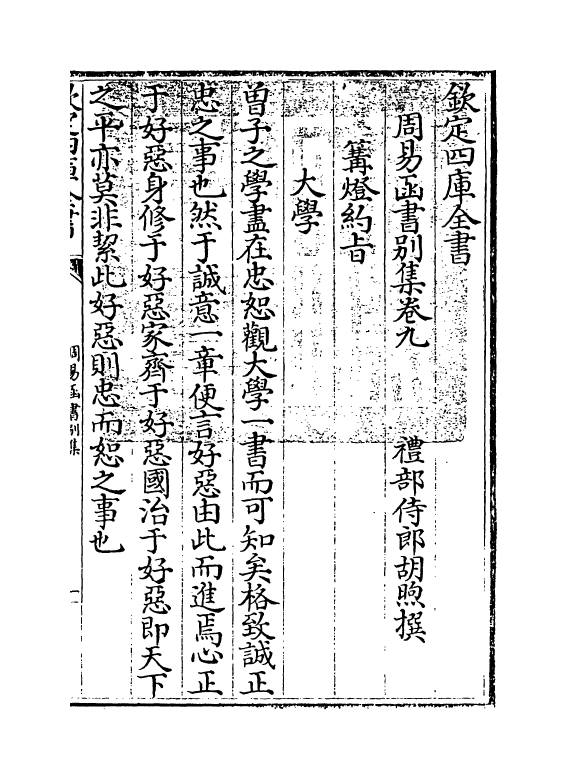 欽定四庫全書
周易函書別集卷九
禮部侍郎胡煦撰
篝燈約旨
大學
曾子之學盡在忠恕觀大學一書而可知矣格致誠正
忠之事也然于誠意一章便言好惡由此而進焉心正
于好惡身修于好惡家齊于好惡國治于好惡即天下
之平亦莫非絜此好惡則忠而恕之事也
周易函書別集
一